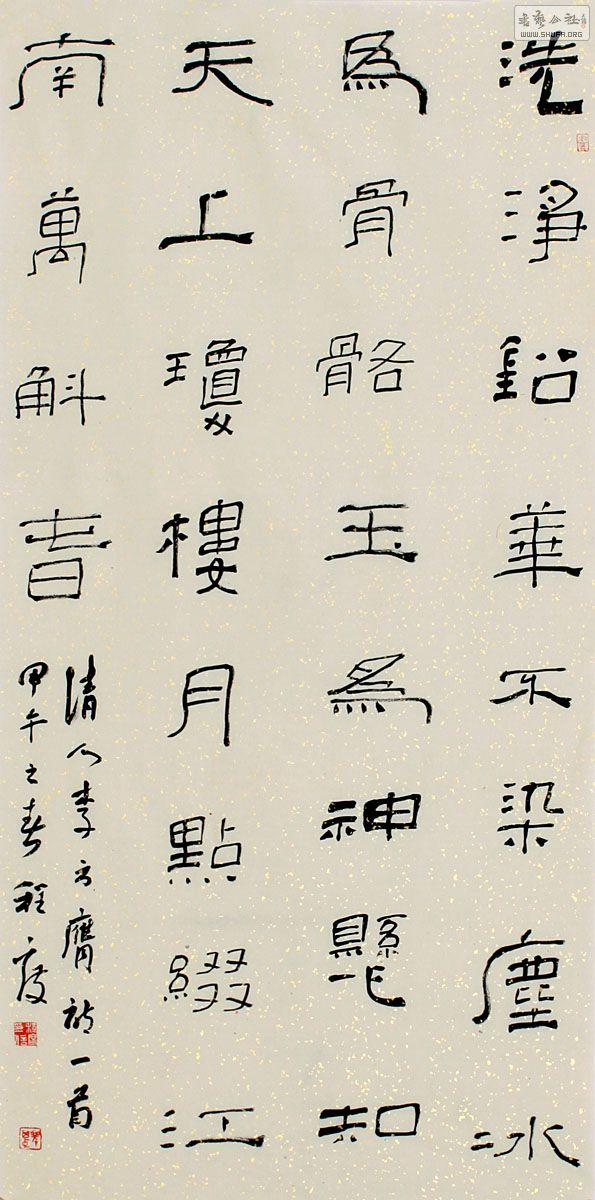 洗淨鉛華不染塵冰
為骨骼玉為神懸知
天上瓊樓月點綴江
南萬斛春
清人李方膺詩一首
甲午之春程度
書藝公社
WWW.SHUFA.ORG